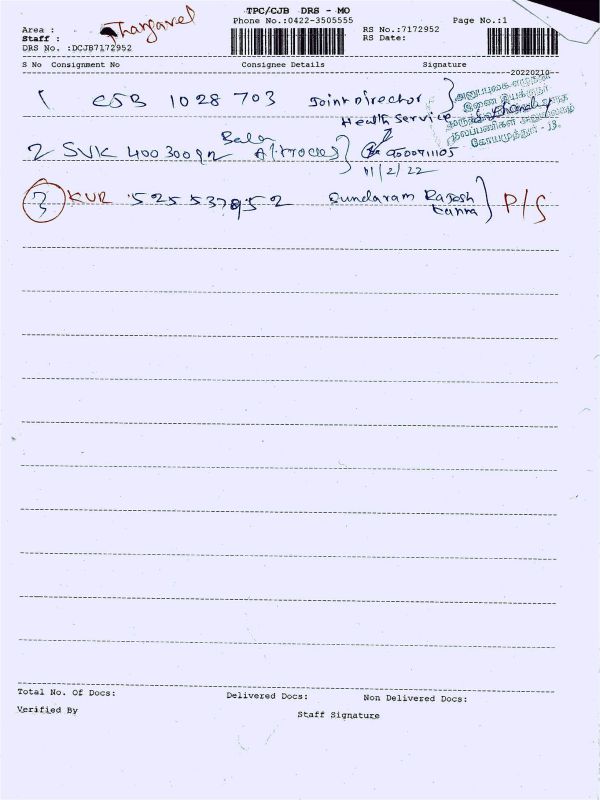 TPC/CJB DRS - MO
Phone No.:0422-3505555
Page No.:1
Area :
Thangavel
Staff :
RS No.:7172952
DRS No. :DCJB7172952
RS Date:
S No Consignment No Consignee Details Signature
20220210
1 CJB 1028 703 Joint Director
Health Service
கோயமுத்தூர் - 18.
2 SVK 400300
Bala
11/2/22
3 KUR 525537952 Sundaram Rajesh
Kanna
P/S
Total No. Of Docs: Delivered Docs: Non Delivered Docs:
Verified By Staff Signature